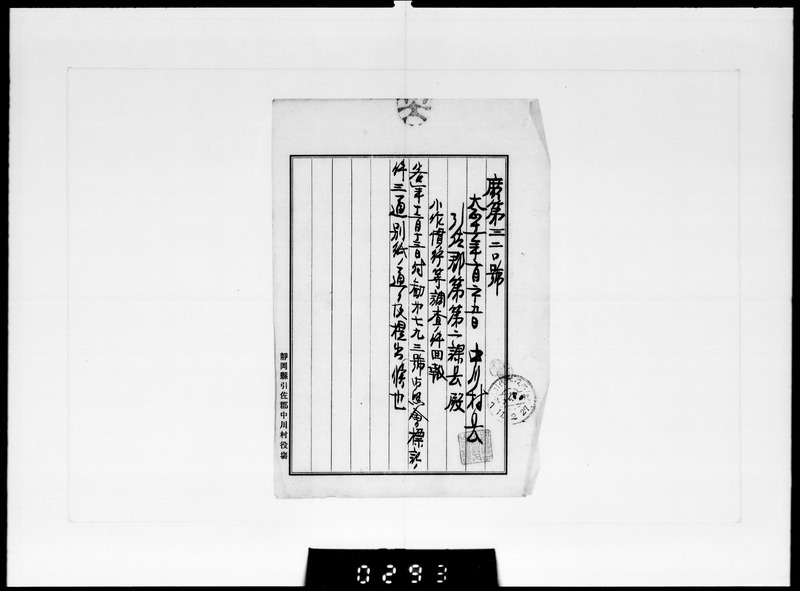 庶第三二〇號
大正十一年一月二十五日　中川村長
引佐郡第二課長殿
小作慣行等調査件回報
十二月十二日付勧第七九三號ヲ以テ照會標記ノ
件三通別紙ノ通リ及提出候也
靜岡縣引佐郡中川村役場
0293